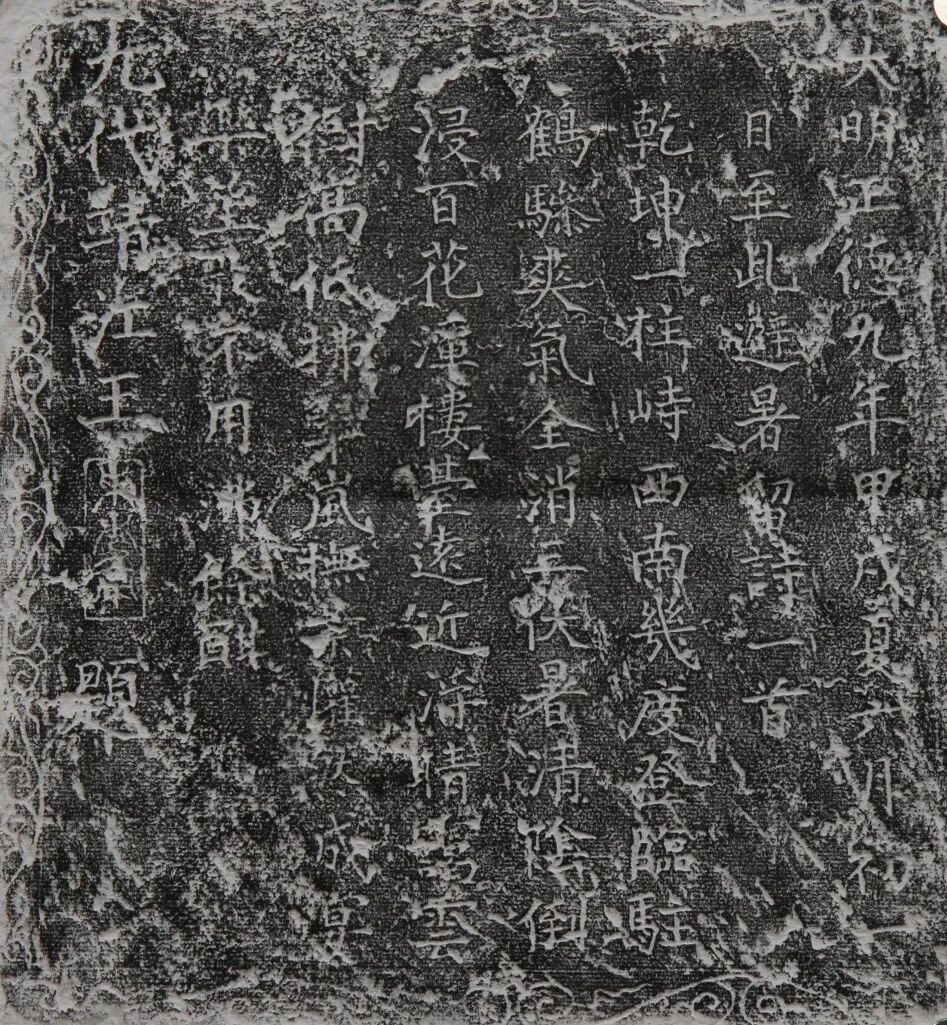 大明正德九年甲戌夏六月初一
日至此避暑留詩一首
乾坤一柱峙西南幾度登臨駐
鶴驂爽氣全消三伏暑清陰倒
浸百花潭樓臺遠近浮晴靄雲
樹高低拂翠嵐撫景麈談成宴
不用沛絲酣
九代靖江王題